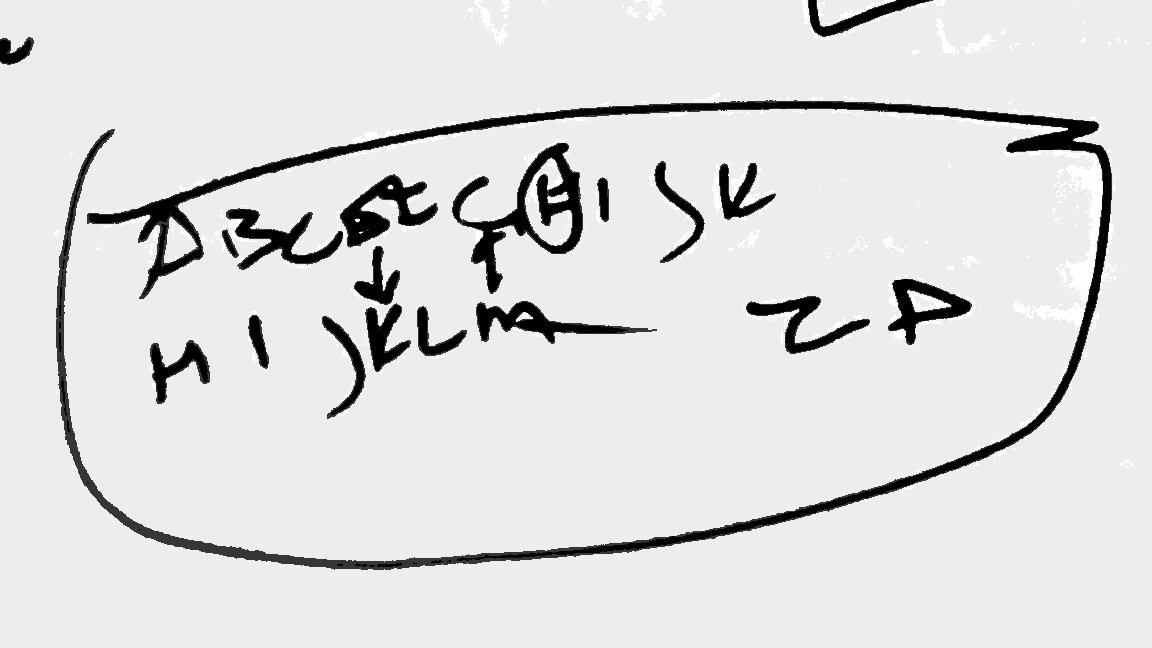 A B C D E G H I J K
H I J K L M Z A